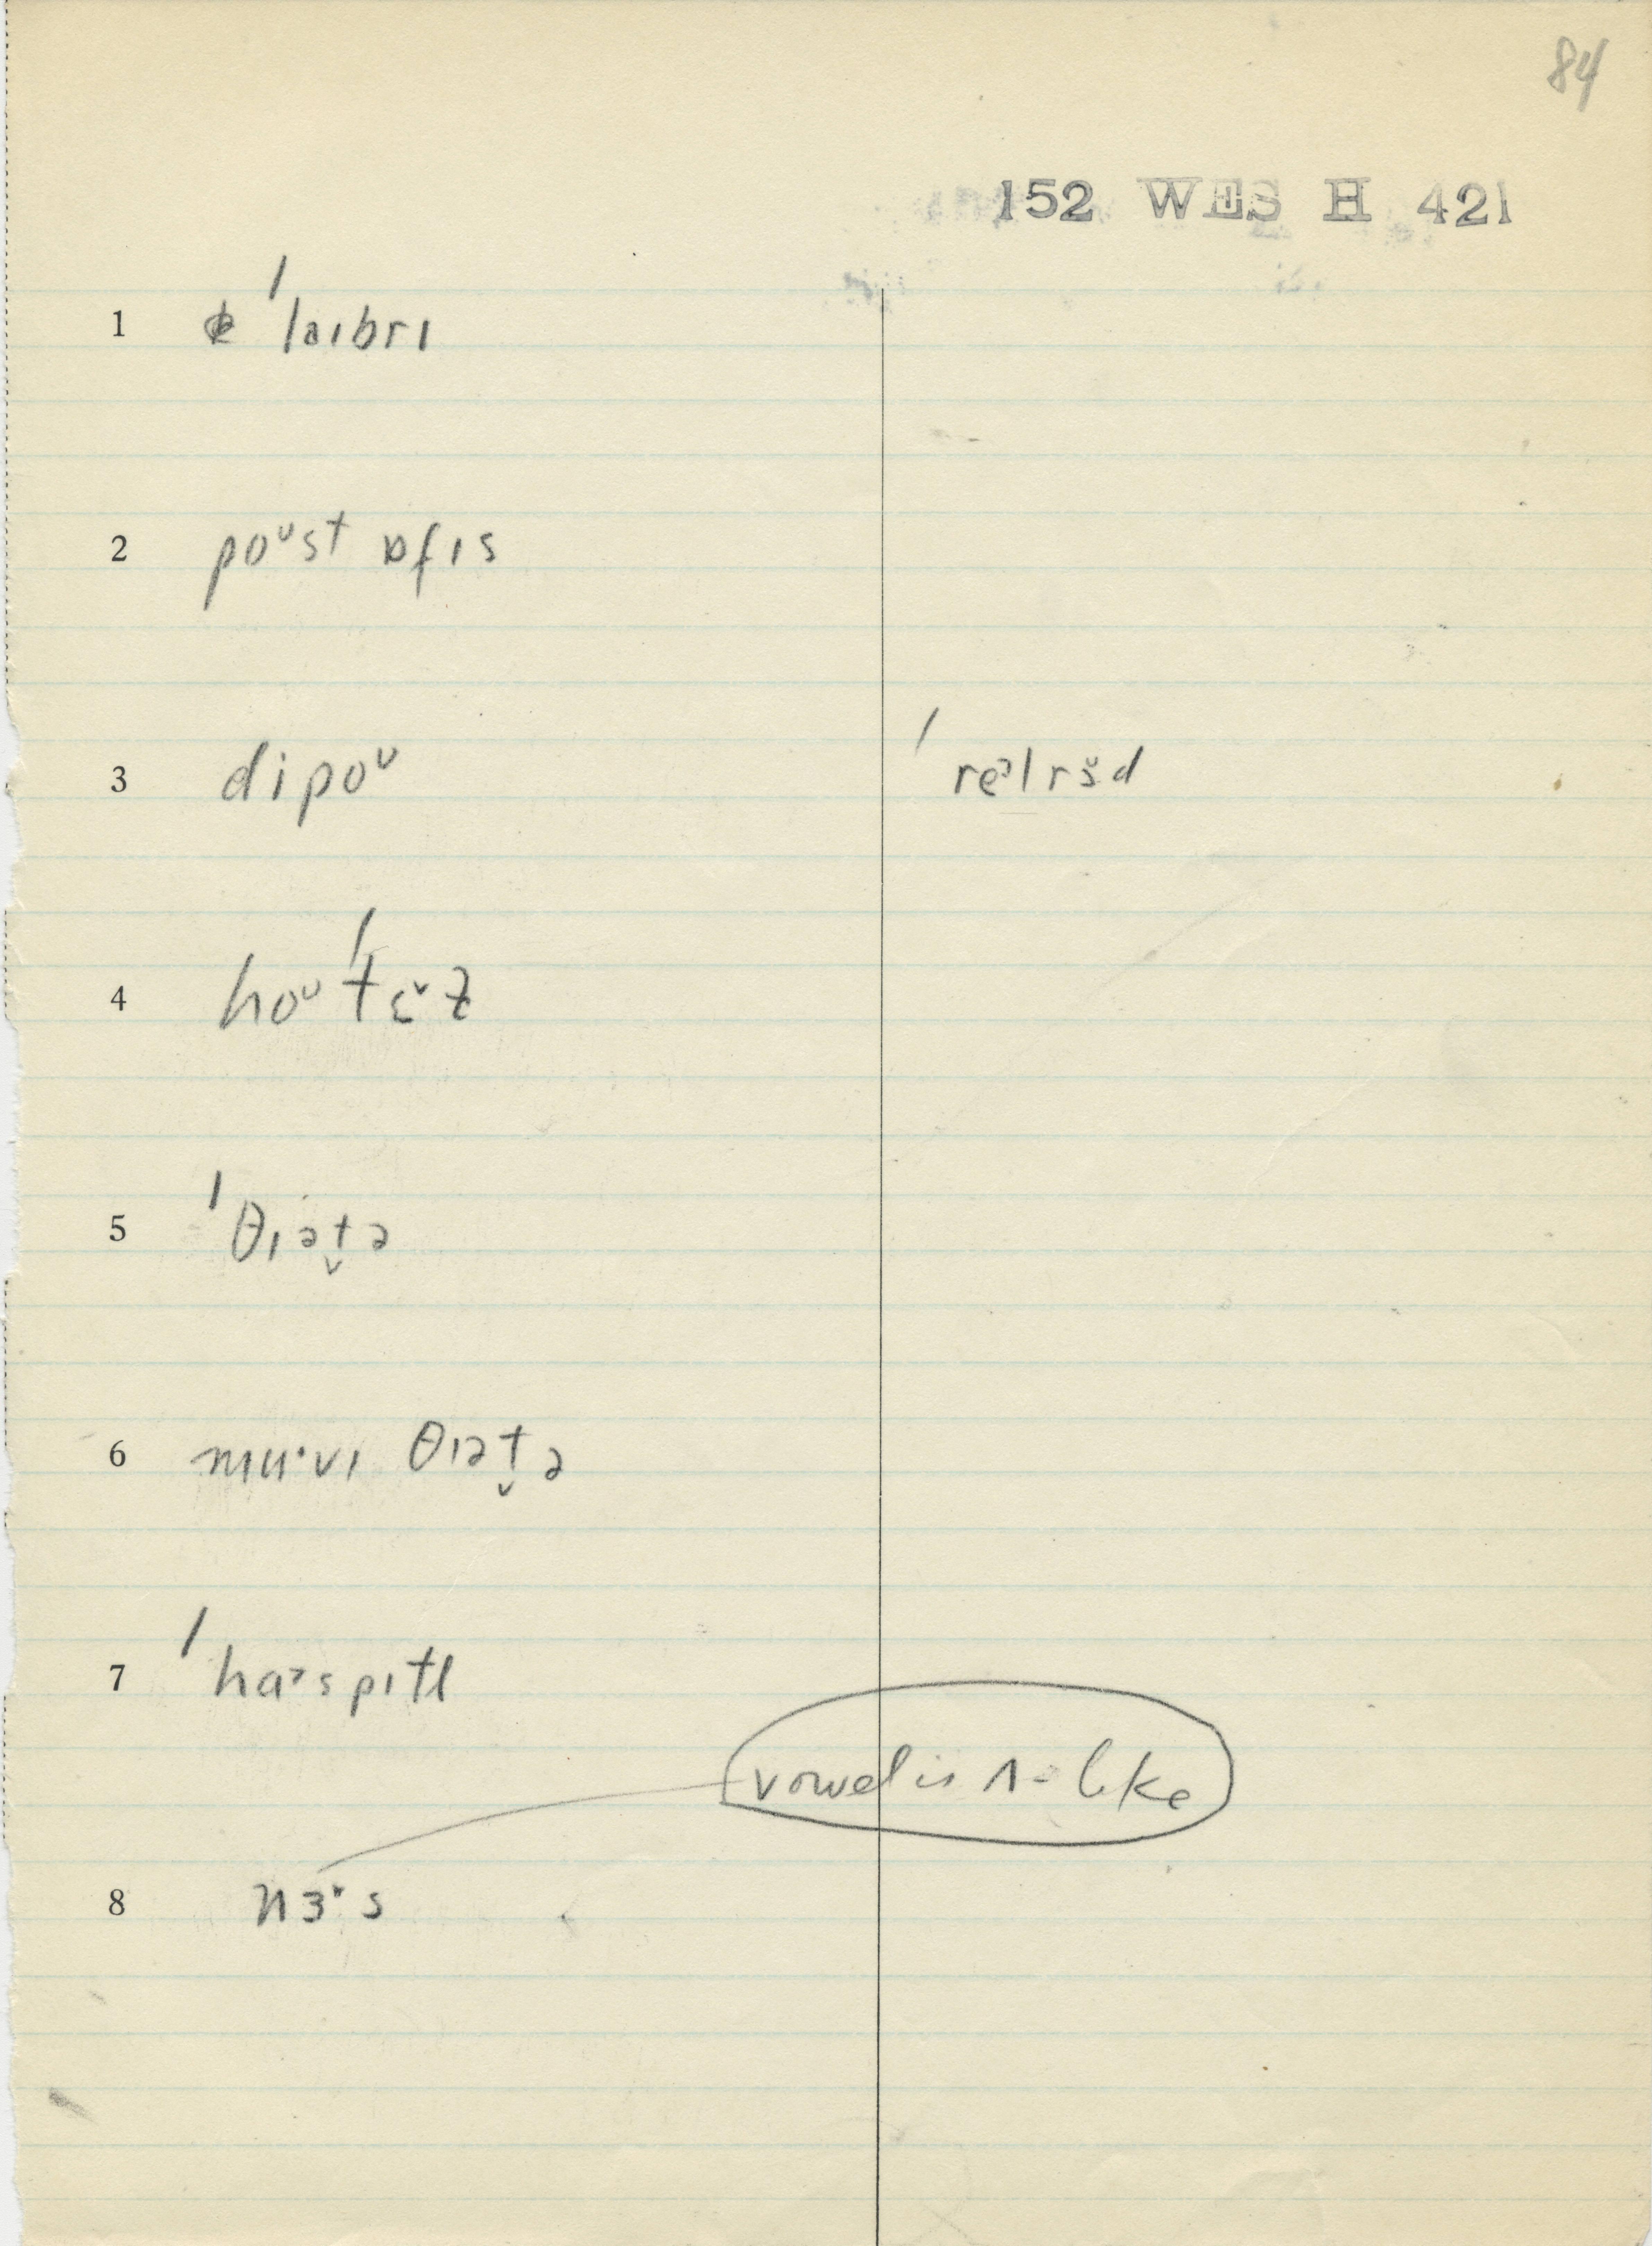 84
152 WES H 421
1 ˈlaɪbrɪ
2 poᶷst ɒfɪs
3 dipoᶷ ˈreᵊlrɜ̆d
4 hoᶷˈtɛ̆ɫ
5 ˈθɪət̬ə
6 mu·vɪ θɪət̬ə
7 ˈhaᵊspɪtl
vowel is ʌ-like
8 nɜ·s